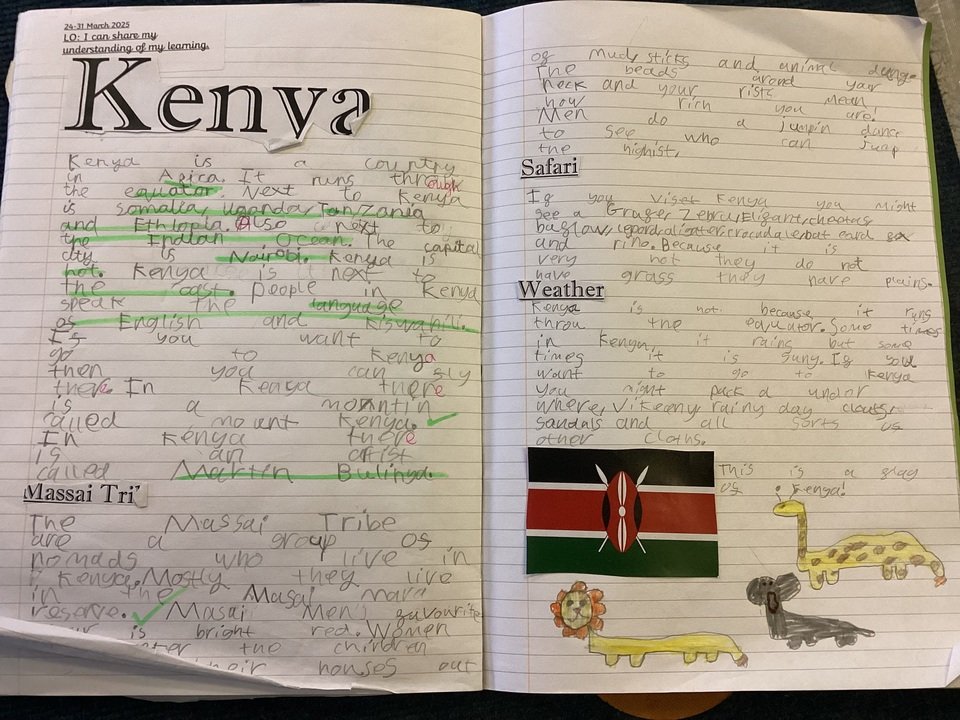 24-31 March 2025
LO: I can share my
understanding of my learning.
Kenya
Kenya is a country
in Africa. It runs through
the equator. Next to Kenya
is somalia, uganda, Tanzania
and Ethiopia. Also next to
the Indian Ocean. The capital
city is Nairobi. Kenya is
hot. Kenya is next to
the coast. people in Kenya
speak the language
of English and Kiswahili.
If you want to
go to Kenya
then you can fly
there. In Kenya there
is a mountin
called mount Kenya.
In Kenya there
is an artist
called Martin Bulinya.
Massai Tri
The Massai Tribe
are a group of
nomads who live in
Kenya. Mostly they live
in the Masai mara
reserve. Masai Men's favourite
is bright red. Women
the children
their houses out
of mud, sticks and animal dung.
The beads arond your
neck and your rists mean
how rich you are.
Men do a jumpin dance
to see who can jump
the highist.
Safari
If you viset Kenya you might
see a Zebra,
and rino. Because it is
very hot they do not
have grass they have plains.
Weather
Kenya is hot because it runs
throu the equator. Some times
in Kenya, it rains but some
times it is suny. If you
want to go to Kenya
you might pack a
where, rainy day
sandals and all sorts of
other cloths.
This is a flag
of Kenya!